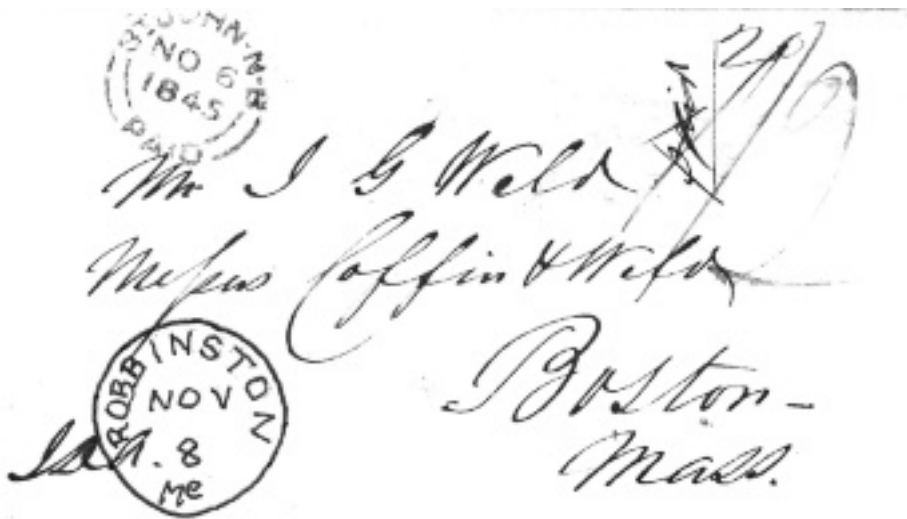 ST JOHN·N·B
NO 6
1845
PAID
Mr I G Weld
Messrs Coffin & Weld
Boston
Mass.
ROBBINSTON
NOV
8
Me